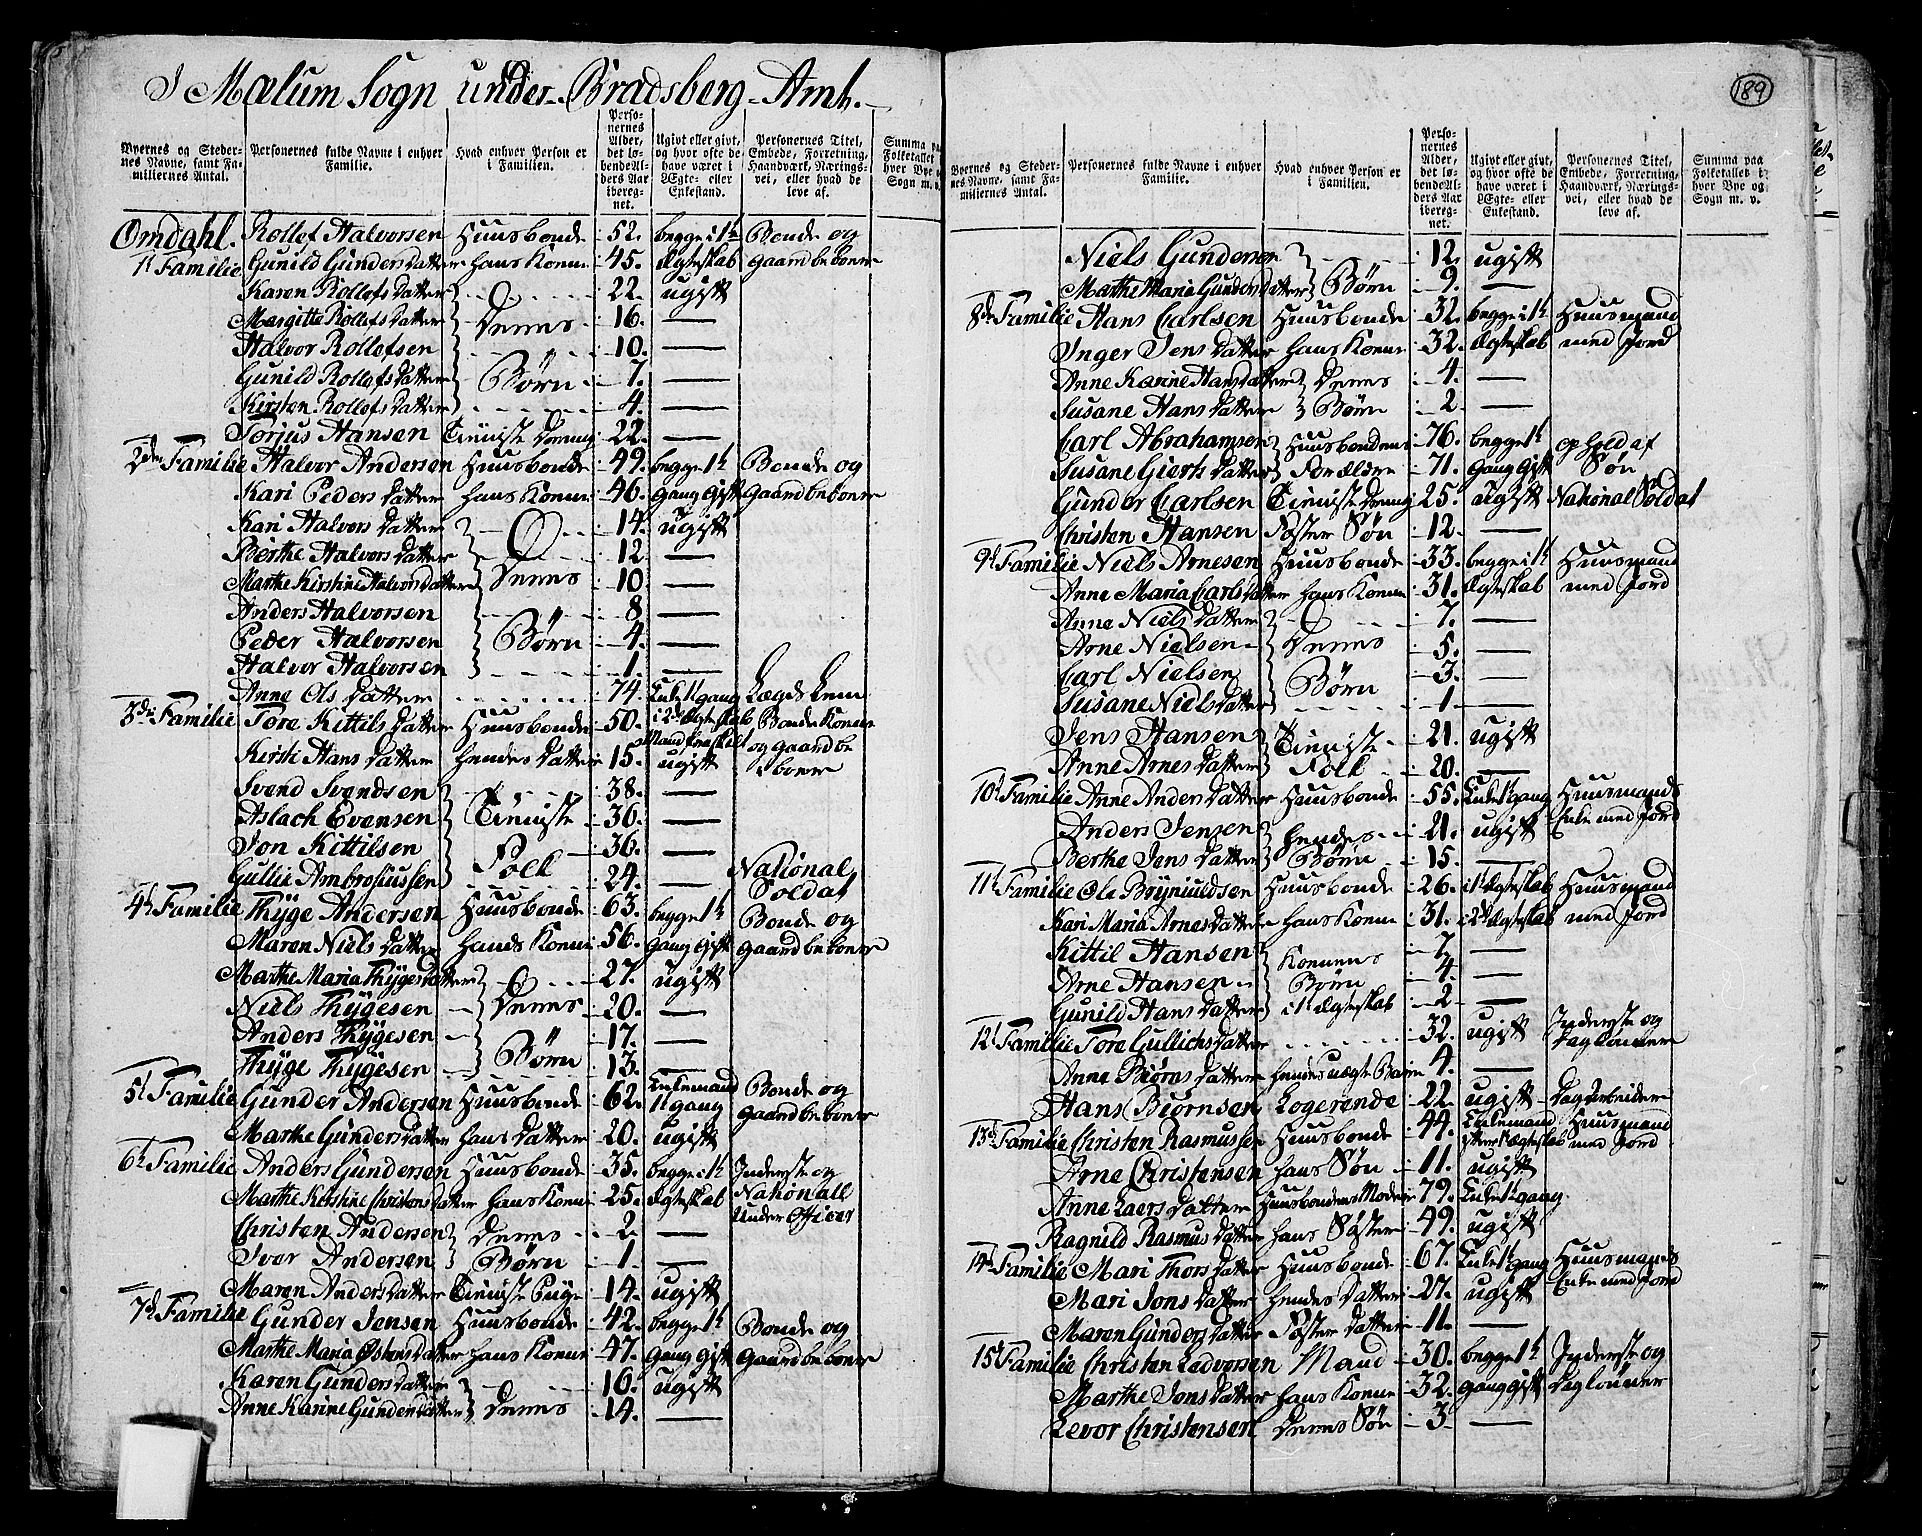 I Mælum Sogn under Bradsberg Amt.
Byernes og Stedernes Navne, samt Familiernes Antal. Personernes fulde Navne i enhver Familie. Hvad enhver Person er i Familien. Personernes Alder, det løbende Alders Aar iberegnet. Ugivt eller givt, og hvor ofte de have været i Ægte- eller Enkestand. Personernes Titel, Embede, Forretning, Haandværk, Næringsvei, eller hvad de leve af. Summa paa Folketallet i hver Bye og Sogn m. v.
Omdahl. Rollef Halvorsen Huusbonde 52. begge i 1t Bonde og
1t Familie Gunild Gundersdatter hans Konne 45. Ægteskab gaardbeboere
Karen Rollefsdatter 22. ugift
Margitte Rollefsdatter Deres 16. —
Halvor Rollefsen 10. —
Gunild Rollefsdatter Børn 7. —
Kirsten Rollefsdatter 4. —
Torjus Hansen Tieniste Dreng 22. —
2den Familie Halvor Andersen Huusbonde 49. begge 1t Bonde og
Kari Pedersdatter hans Konne 46. gang gift gaardbeboere
Kari Halvorsdatter 14. ugift
Berthe Halvorsdatter 12 —
Marthe Kirstine Halvorsdatter Deres 10 —
Anders Halvorsen 8 —
Peder Halvorsen Børn 4. —
Halvor Halvorsen 1. —
Anne Olsdatter 74. Enke 1t gang Lægds Lem
3de Familie Tore Kittilsdatter Huusbonde 50. i 2det Ægteskab Bonde Konne
Mand fraskilt og gaardbe
Kirsti Hansdatter hendes datter 15. ugift boere
Svend Svendsen 38. —
Aslach Evensen Tieniste 36. —
Jon Kittilsen 36. —
Gullie Ambrosiussen Folk 24. — National Soldat
4t Familie Thyge Andersen Huusbonde 63. begge 1t Bonde og
Maren Nielsdatter hands Konne 56. gang gift gaardbeboere
Marthe Maria Thygesdatter 27. ugift
Niels Thygesen Deres 20. —
Anders Thygesen 17. —
Thyge Thygesen Børn 13. —
5t Familie Gunder Andersen Huusbonde 62. Enkemand 1t gang Bonde og gaardbeboere
Marthe Gundersdatter hans datter 20. ugift
6t Familie Anders Gundersen Huusbonde 35. begge i 1t Inderste og
Marthe Kirstine Christensdatter hans Konne 25. Ægteskab National Under Officer
Christen Andersen Deres 2. —
Iver Andersen Børn 1. —
Maren Andersdatter Tieniste Pige 14. ugift
7d Familie Gunder Jensen Huusbonde 42. begge 1t Bonde og
Marthe Maria Østensdatter hans Konne 47. gang gift gaardbeboere
Karen Gundersdatter 16. ugift
Anne Karine Gundersdatter Deres 14. —
189
Byernes og Stedernes Navne, samt Familiernes Antal. Personernes fulde Navne i enhver Familie. Hvad enhver Person er i Familien. Personernes Alder, det løbende Alders Aar iberegnet. Ugivt eller givt, og hvor ofte de have været i Ægte- eller Enkestand. Personernes Titel, Embede, Forretning, Haandværk, Næringsvei, eller hvad de leve af. Summa paa Folketallet i hver Bye og Sogn m. v.
Niels Gundersen 12. ugift
Marthe Maria Gundersdatter Børn 9. —
8de Familie Hans Carlsen Huusbonde 32. begge i 1t Huusmand
Inger Jensdatter hans Konne 32. Ægteskab med Jord
Anne Karine Hansdatter Deres 4. —
Susane Hansdatter Børn 2. —
Carl Abrahamsen Huusbondens 76. begge 1t ophold af
Susane Giertsdatter Forældre 71. gang gift Søn
Gunder Carlsen Tieniste Dreng 25. ugift National Soldat
Christen Hansen Foster Søn 12. —
9d Familie Niels Arnesen Huusbonde 33. begge i 1t Huusmand
Anne Maria Carlsdatter hans Konne 31. Ægteskab med Jord
Anne Nielsdatter 7. —
Arne Nielsen Deres 5. —
Carl Nielsen 3. —
Susane Nielsdatter Børn 1 —
Jens Hansen Tieniste 21. ugift
Anne Arnesdatter Folk 20. —
10d Familie Anne Andersdatter Huusbonde 55. Enke 1t gang Huusmands
Anders Jensen hendes 21. ugift Enke med Jord
Berthe Jensdatter Børn 15. —
11t Familie Ole Bryniuldsen Huusbonde 26. i 1t Ægteskab Huusmand
Kari Maria Arnesdatter hans Konne 31. i 2det Ægteskab med Jord
Kittil Hansen Konnens 7. —
Arne Hansen Børn 4. —
Gunild Hansdatter i 1t Ægteskab 2. —
12t Familie Tore Gullichsdatter 32. ugift Inderste og Daglønner
Anne Biørnsdatter hendes uægte Barn 4. —
Hans Biørnsen Logerende 22. ugift Dagarbeider
13d Familie Christen Rasmussen Huusbonde 44. Enkemand Huusmand
efter 1t Ægteskab med Jord
Arne Christensen hans Søn 11. ugift
Anne Laersdatter Huusbondens Moder 79. Enke 1t gang
Ragnild Rasmusdatter hans Søster 49. ugift
14d Familie Mari Thorsdatter Huusbonde 67. Enke 1t gang Huusmands
Mari Jonsdatter hendes datter 27. ugift Enke med Jord
Maren Gundersdatter Foster datter 11. —
15d Familie Christen Ledvorsen Mand 30. begge 1t Inderste og
Marthe Jonsdatter hans Konne 32. gang gift Daglønner
Levor Christensen Deres Søn 3. —